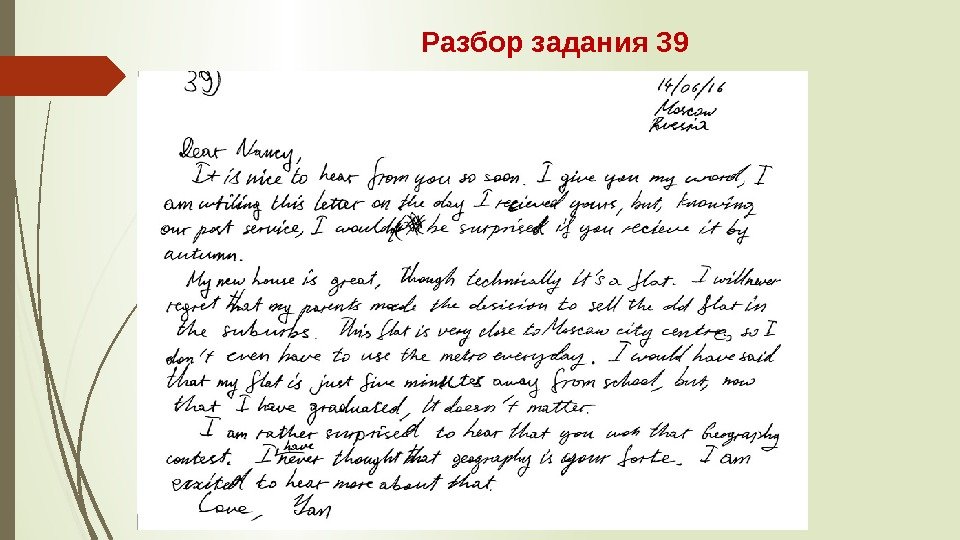 Разбор задания 39
39)
14/06/16
Moscow
Russia
Dear Nancy,
It is nice to hear from you so soon. I give you my word, I
am writing this letter on the day I recieved yours, but, knowing
our post service, I would be surprised if you recieve it by
autumn.
My new house is great, though technically it's a flat. I will never
regret that my parents made the desicion to sell the old flat in
the suburbs. This flat is very close to Moscow city centre, so I
don't even have to use the metro everyday. I would have said
that my flat is just five minutes away from school, but, now
that I have graduated, it doesn't matter.
I am rather surprised to hear that you won that Geography
contest. I have never thought that geography is your forte. I am
excited to hear more about that.
Love, Yan